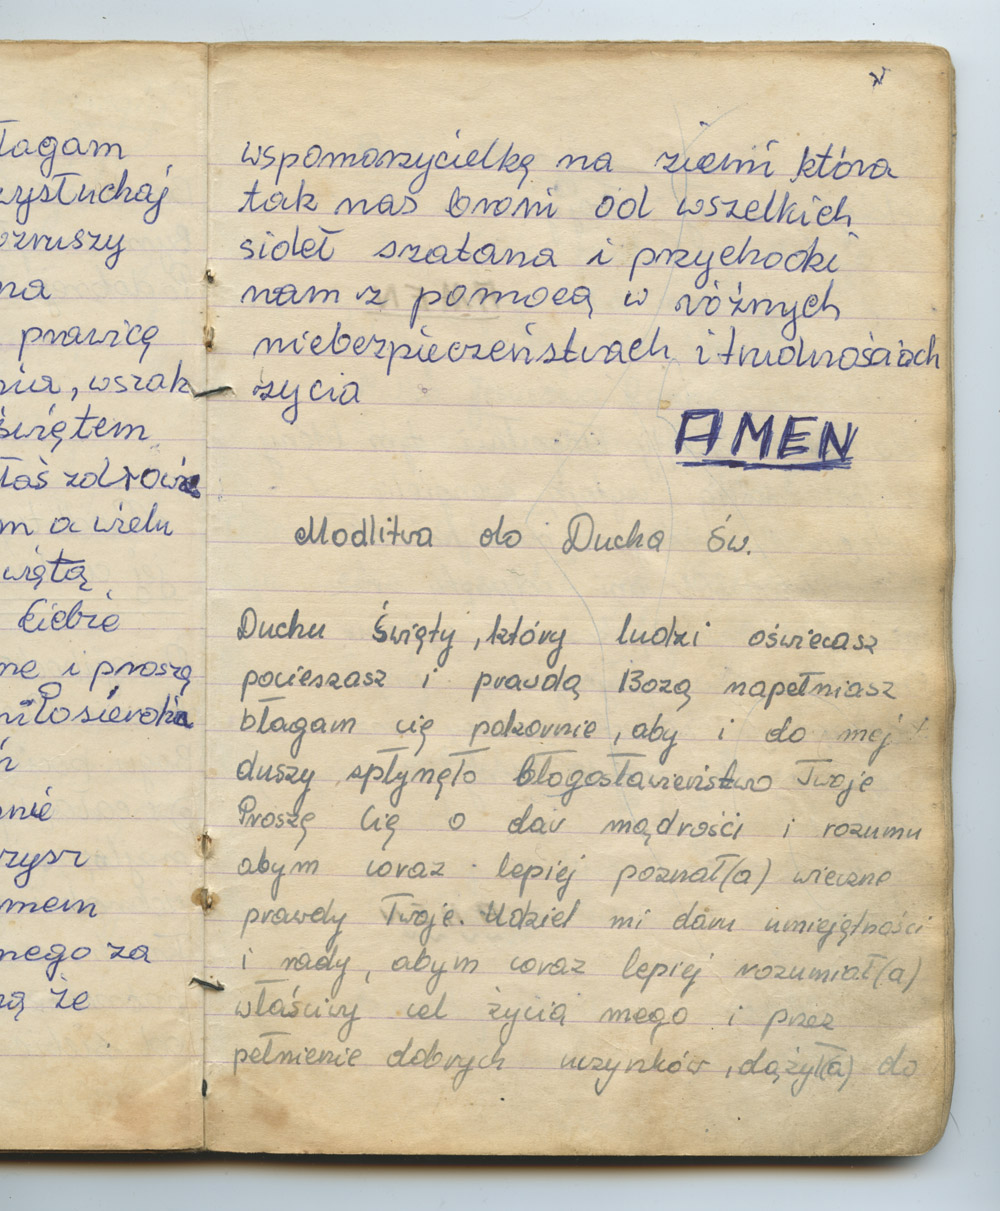 łagam
wysłuchaj
na
prawicę
wszak
świętem
łaś zdrowie
m a wielu
więtą
Ciebie
ne i proszę
miłosierdzia
nie
mem
nego za
że
wspomorzycielką na ziemi która
tak nas broni od wszelkich
sideł szatana i przychodzi
nam z pomocą w różnych
niebezpieczeństwach i trudnościach
życia
AMEN
Modlitwa do Ducha Św.
Duchu Święty, który ludzi oświecasz
pocieszasz i prawdą Bożą napełniasz
błagam cię pokornie, aby i do mej
duszy spłynęło błogosławieństwo Twoje
Proszę Cię o dar mądrości i rozumu
abym coraz lepiej poznał(a) wieczne
prawdy Twoje. Udziel mi daru umiejętności
i rady, abym coraz lepiej rozumiał(a)
właściwy cel życia mego i przez
pełnienie dobrych uczynków, dążył(a) do